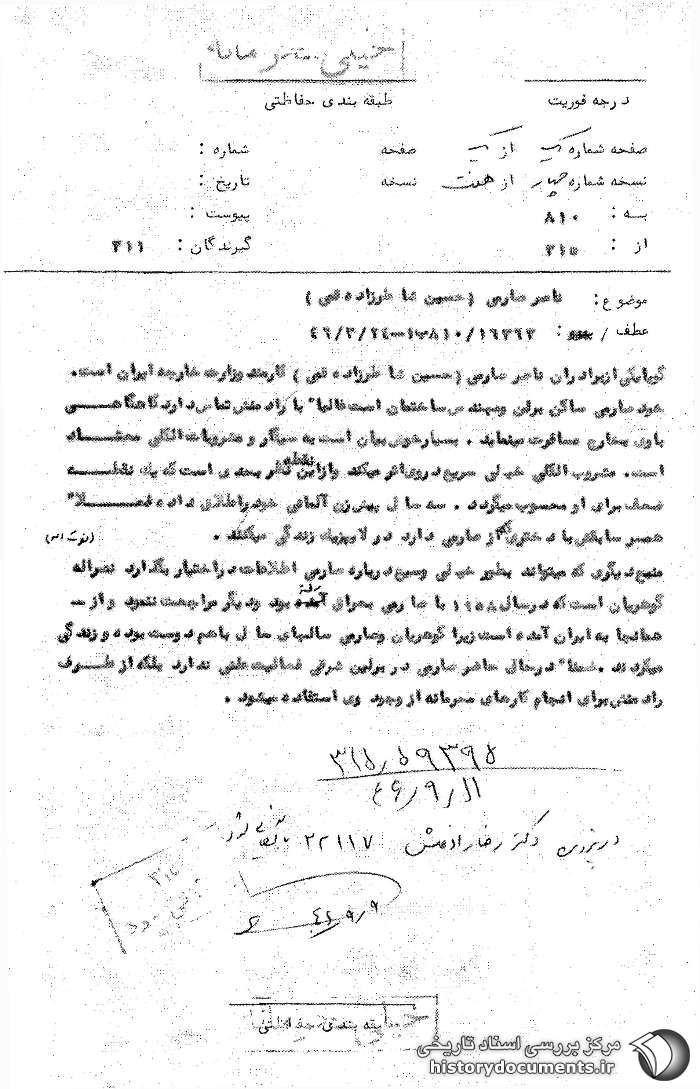 خیلی محرمانه
درجه فوریت
طبقه بندی حفاظتی
صفحه شماره یک از یک صفحه
شماره :
نسخه شماره چهار از هفت نسخه
تاریخ :
به : ۸۱۰
پیوست :
از : ۳۱۵
گیرندگان : ۳۱۱
موضوع : ناصر صارمی (حسین شاطرزاده قمی )
عطف / : ۴۶/۳/۲۴-۱۶۳۶۳/
گویا یکی از برادران ناصر صارمی (حسین شاطرزاده قمی ) کارمند وزارت خارجه ایران است.
خود صارمی ساکن برلن و مهندس ساختمان است غالبا" با رادمنش تماس دارد گاهگاهی
با وی بخارج مسافرت مینماید . بسیار خوش بیان است به سیگار و مشروبات الکلی معتاد
است. مشروب الکلی خیلی سریع در وی اثر میکند و از این نقطه نظر بحدی است که یک نقطه
ضعف برای او محسوب میگردد . سه سال پیش زن آلمانی خود را طلاق داده فعلا"
همسر سابقش با دختری که از صارمی دارد در لایپزیک زندگی میکنند .
منبع دیگری که میتواند بطور خیلی وسیع درباره صارمی اطلاعات در اختیار بگذارد نصراله
گوهریان است که در سال ۱۹۵۸ با صارمی بعراق رفته بود و دیگر مراجعت ننمود و از
همانجا به ایران آمده است زیرا گوهریان و صارمی سالهای سال باهم دوست بوده و زندگی
میکردند . ضمنا" در حال حاضر صارمی در برلین شرقی فعالیت علنی ندارد بلکه از طرف
رادمنش برای انجام کارهای محرمانه از وجود وی استفاده میشود .
۳۱۵/۵۹۳۹۵
۴۶/۹/۱۱
در پرونده دکتر رضا رادمنش ۲۲۱۱۷
۴۶/۹/۹
۳۱۵
طبقه بندی حفاظتی
مرکز بررسی اسناد تاریخی
historydocuments.ir